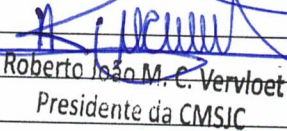 Roberto João M. C. Vervloet
Presidente da CMSJC